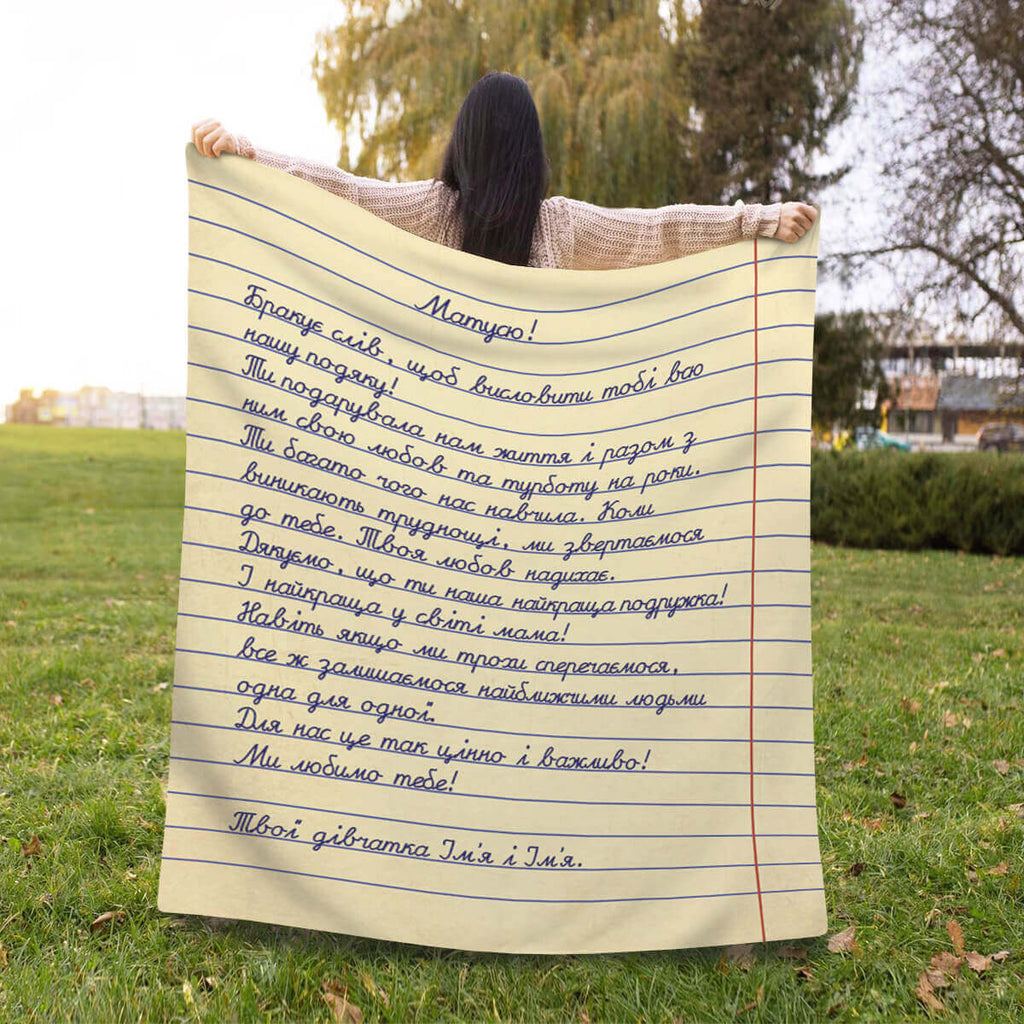 Матусю!
Бракує слів, щоб висловити тобі всю
нашу подяку!
Ти подарувала нам життя і разом з
ним свою любов та турботу на роки.
Ти багато чого нас навчила. Коли
виникають труднощі, ми звертаємося
до тебе. Твоя любов надихає.
Дякуємо, що ти наша найкраща подружка!
І найкраща у світі мама!
Навіть якщо ми трохи сперечаємося,
все ж залишаємося найближчими людьми
одна для одної.
Для нас це так цінно і важливо!
Ми любимо тебе!
Твої дівчатка Ім'я і Ім'я.